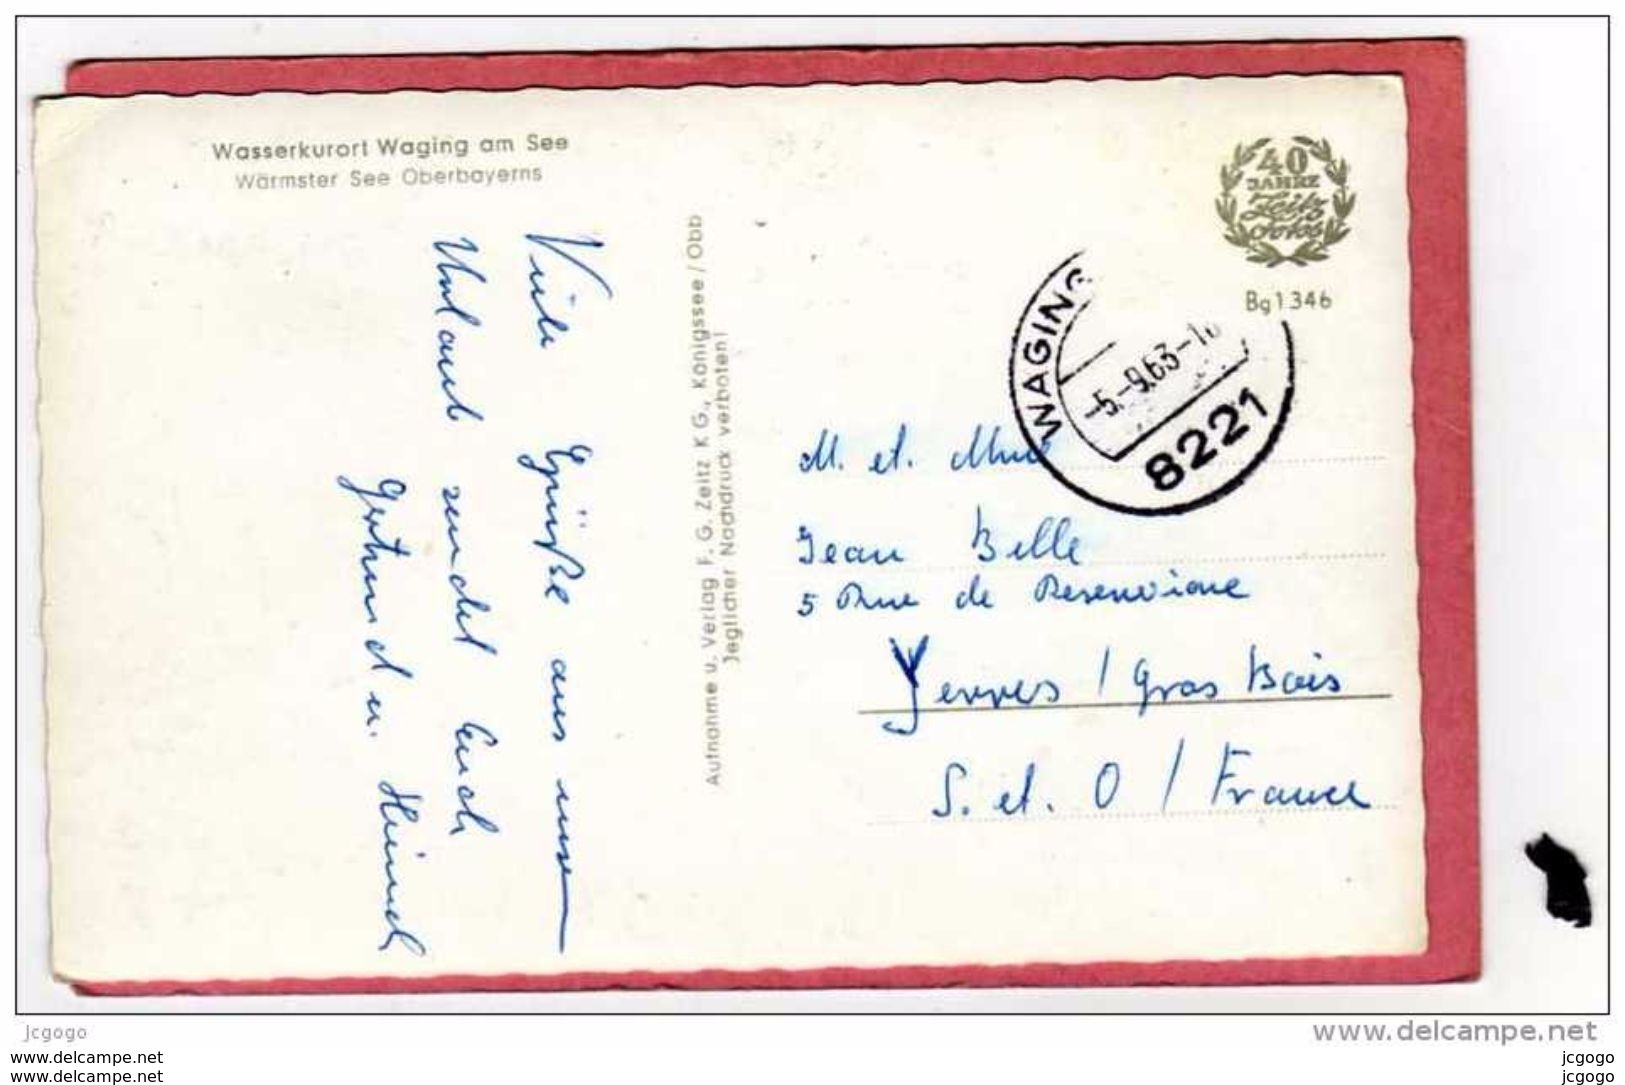 Wasserkurort Waging am See
Wärmster See Oberbayerns
Viele Grüße aus unserm
Urlaub sendet Euch
Gertrud u. Heinrich
Aufnahme u. Verlag F. G. Zeitz KG., Königssee/Obb
Jeglicher Nachdruck verboten!
40
JAHRE
Zeitz
Fotos
Bg1346
WAGING
-5.-9.63-10
8221
M. et. Mme
Jean Belle
5 Rue de
Yerres / Gros Bois
S. et. O / France
jcgogo
www.delcampe.net
www.delcampe.net
www.delcampe.net
jcgogo
jcgogo